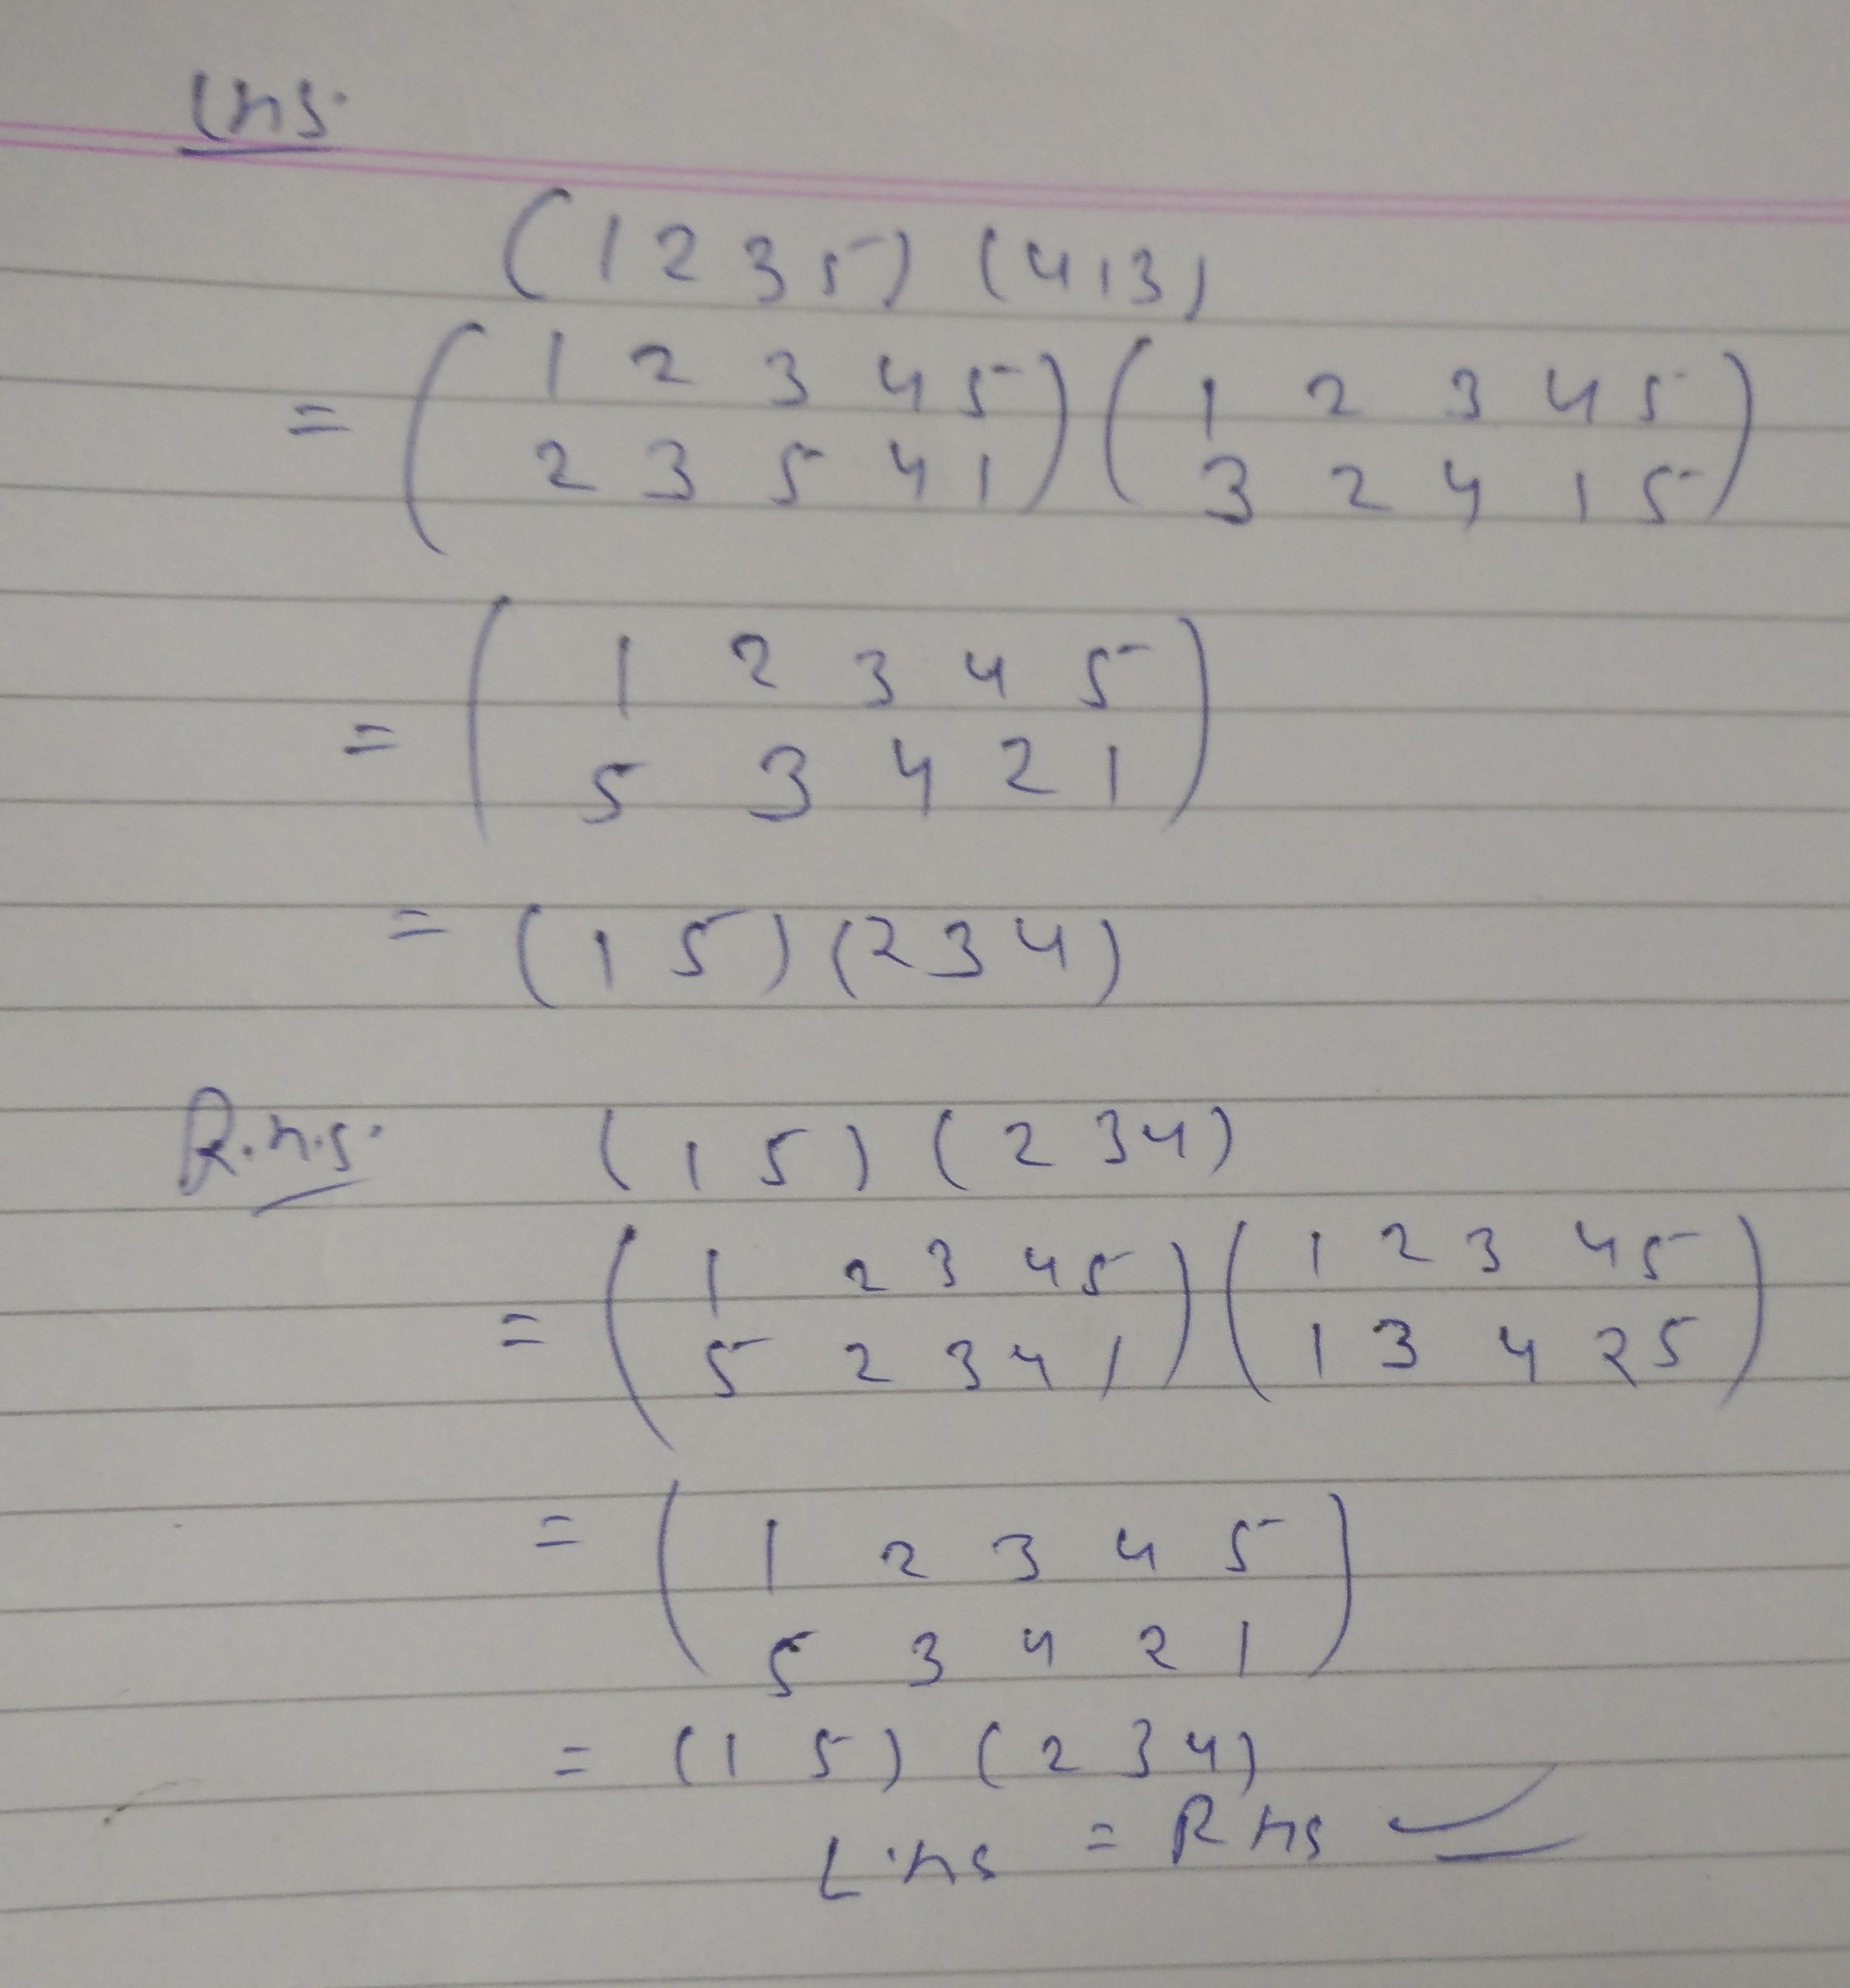 Lhs.
(1 2 3 5) (4 1 3)
= ( 1 2 3 4 5 ) ( 1 2 3 4 5 )
2 3 5 4 1 3 2 4 1 5
= ( 1 2 3 4 5 )
5 3 4 2 1
= (1 5) (2 3 4)
R.h.s. (1 5) (2 3 4)
= ( 1 2 3 4 5 ) ( 1 2 3 4 5 )
5 2 3 4 1 1 3 4 2 5
= ( 1 2 3 4 5 )
5 3 4 2 1
= (1 5) (2 3 4)
L.hs = Rhs